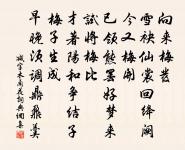 向來梅蕊
雪袂仙裳回絳闕
今又梅開
已領熊羆好夢來
試將梅比
才著陽和爭結子
梅子生成
早晚須調鼎鼐羹
減字木蘭花